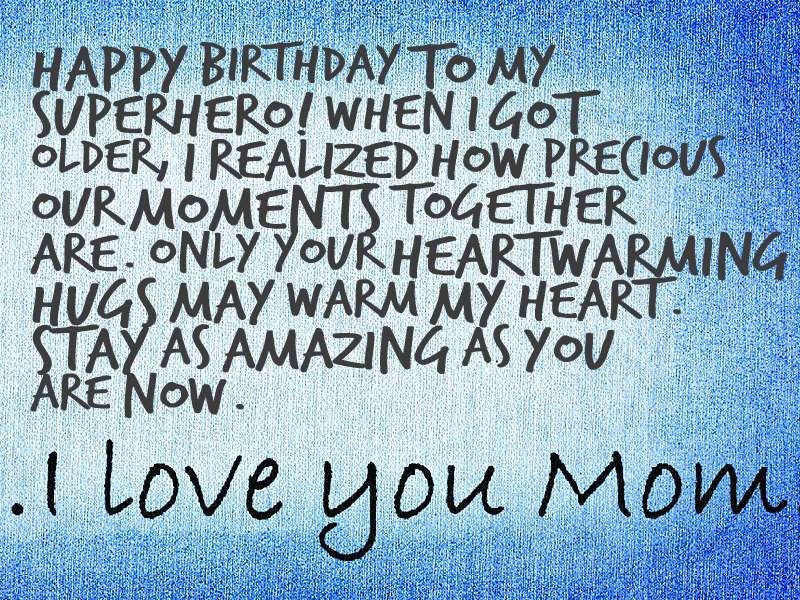 HAPPY BIRTHDAY TO MY
SUPERHERO! WHEN I GOT
OLDER, I REALIZED HOW PRECIOUS
OUR MOMENTS TOGETHER
ARE. ONLY YOUR HEARTWARMING
HUGS MAY WARM MY HEART.
STAY AS AMAZING AS YOU
ARE NOW.
.I love you Mom